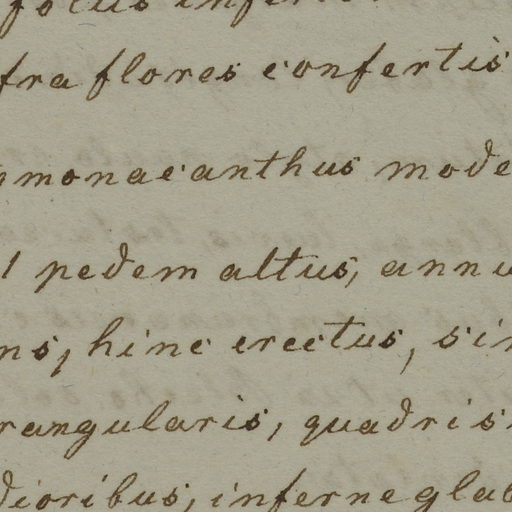 folus infer
fra flores confertis
monacanthus mode
1 pedem altus, annu
ns, hinc erectus, sin
rangularis, quadris
dioribus, inferne glab